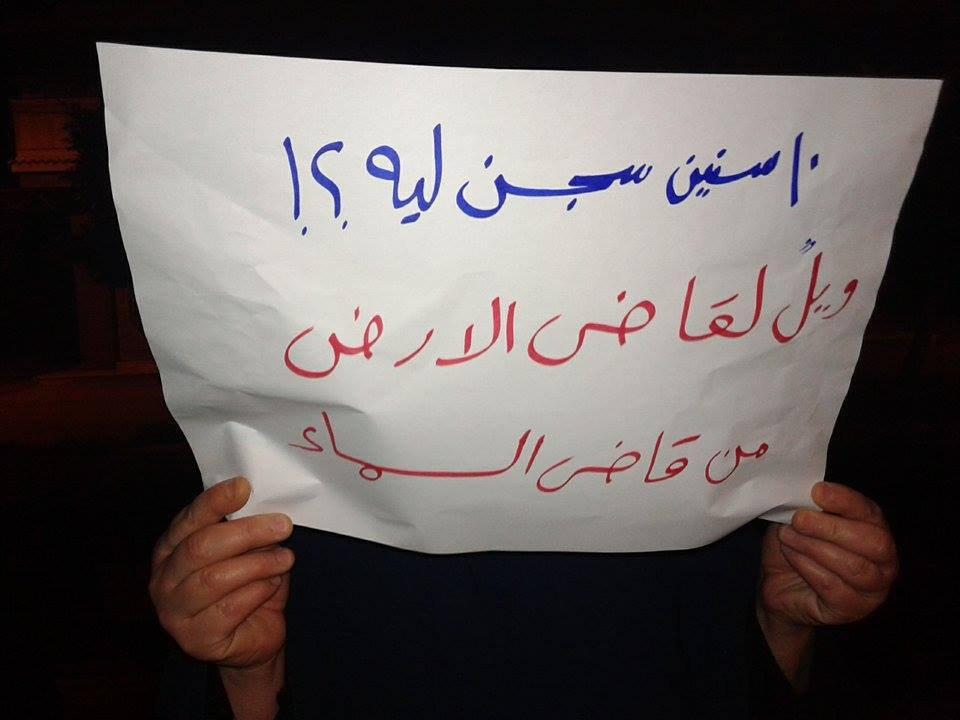 ١٠ سنين سجن ليه ؟!
ويلٌ لقاضى الارض
من قاضى السماء